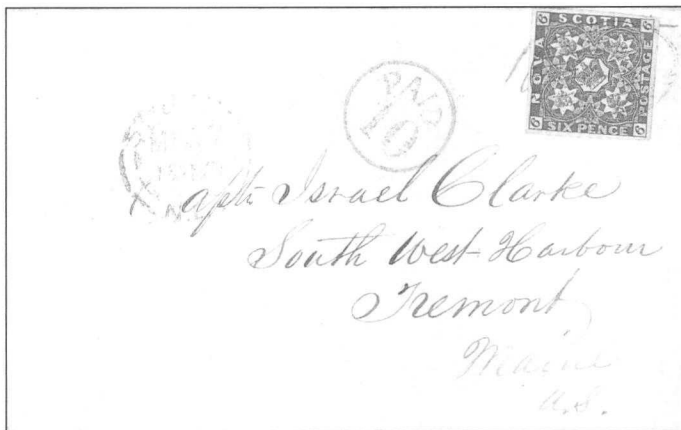 NOVA SCOTIA POSTAGE
SIX PENCE
6 6 6 6
PAID
10
apt. Israel Clarke
South West Harbour
Tremont
Maine
U.S.